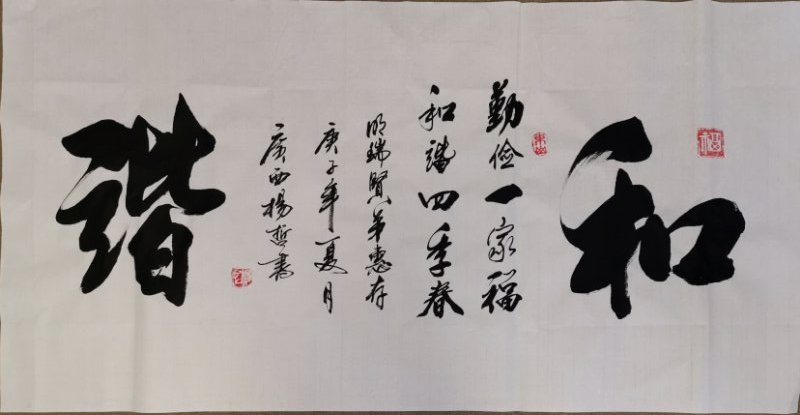 和
勤俭一家福
和諧四季春
明端贤弟惠存
庚子年夏月
广西杨哲書
諧